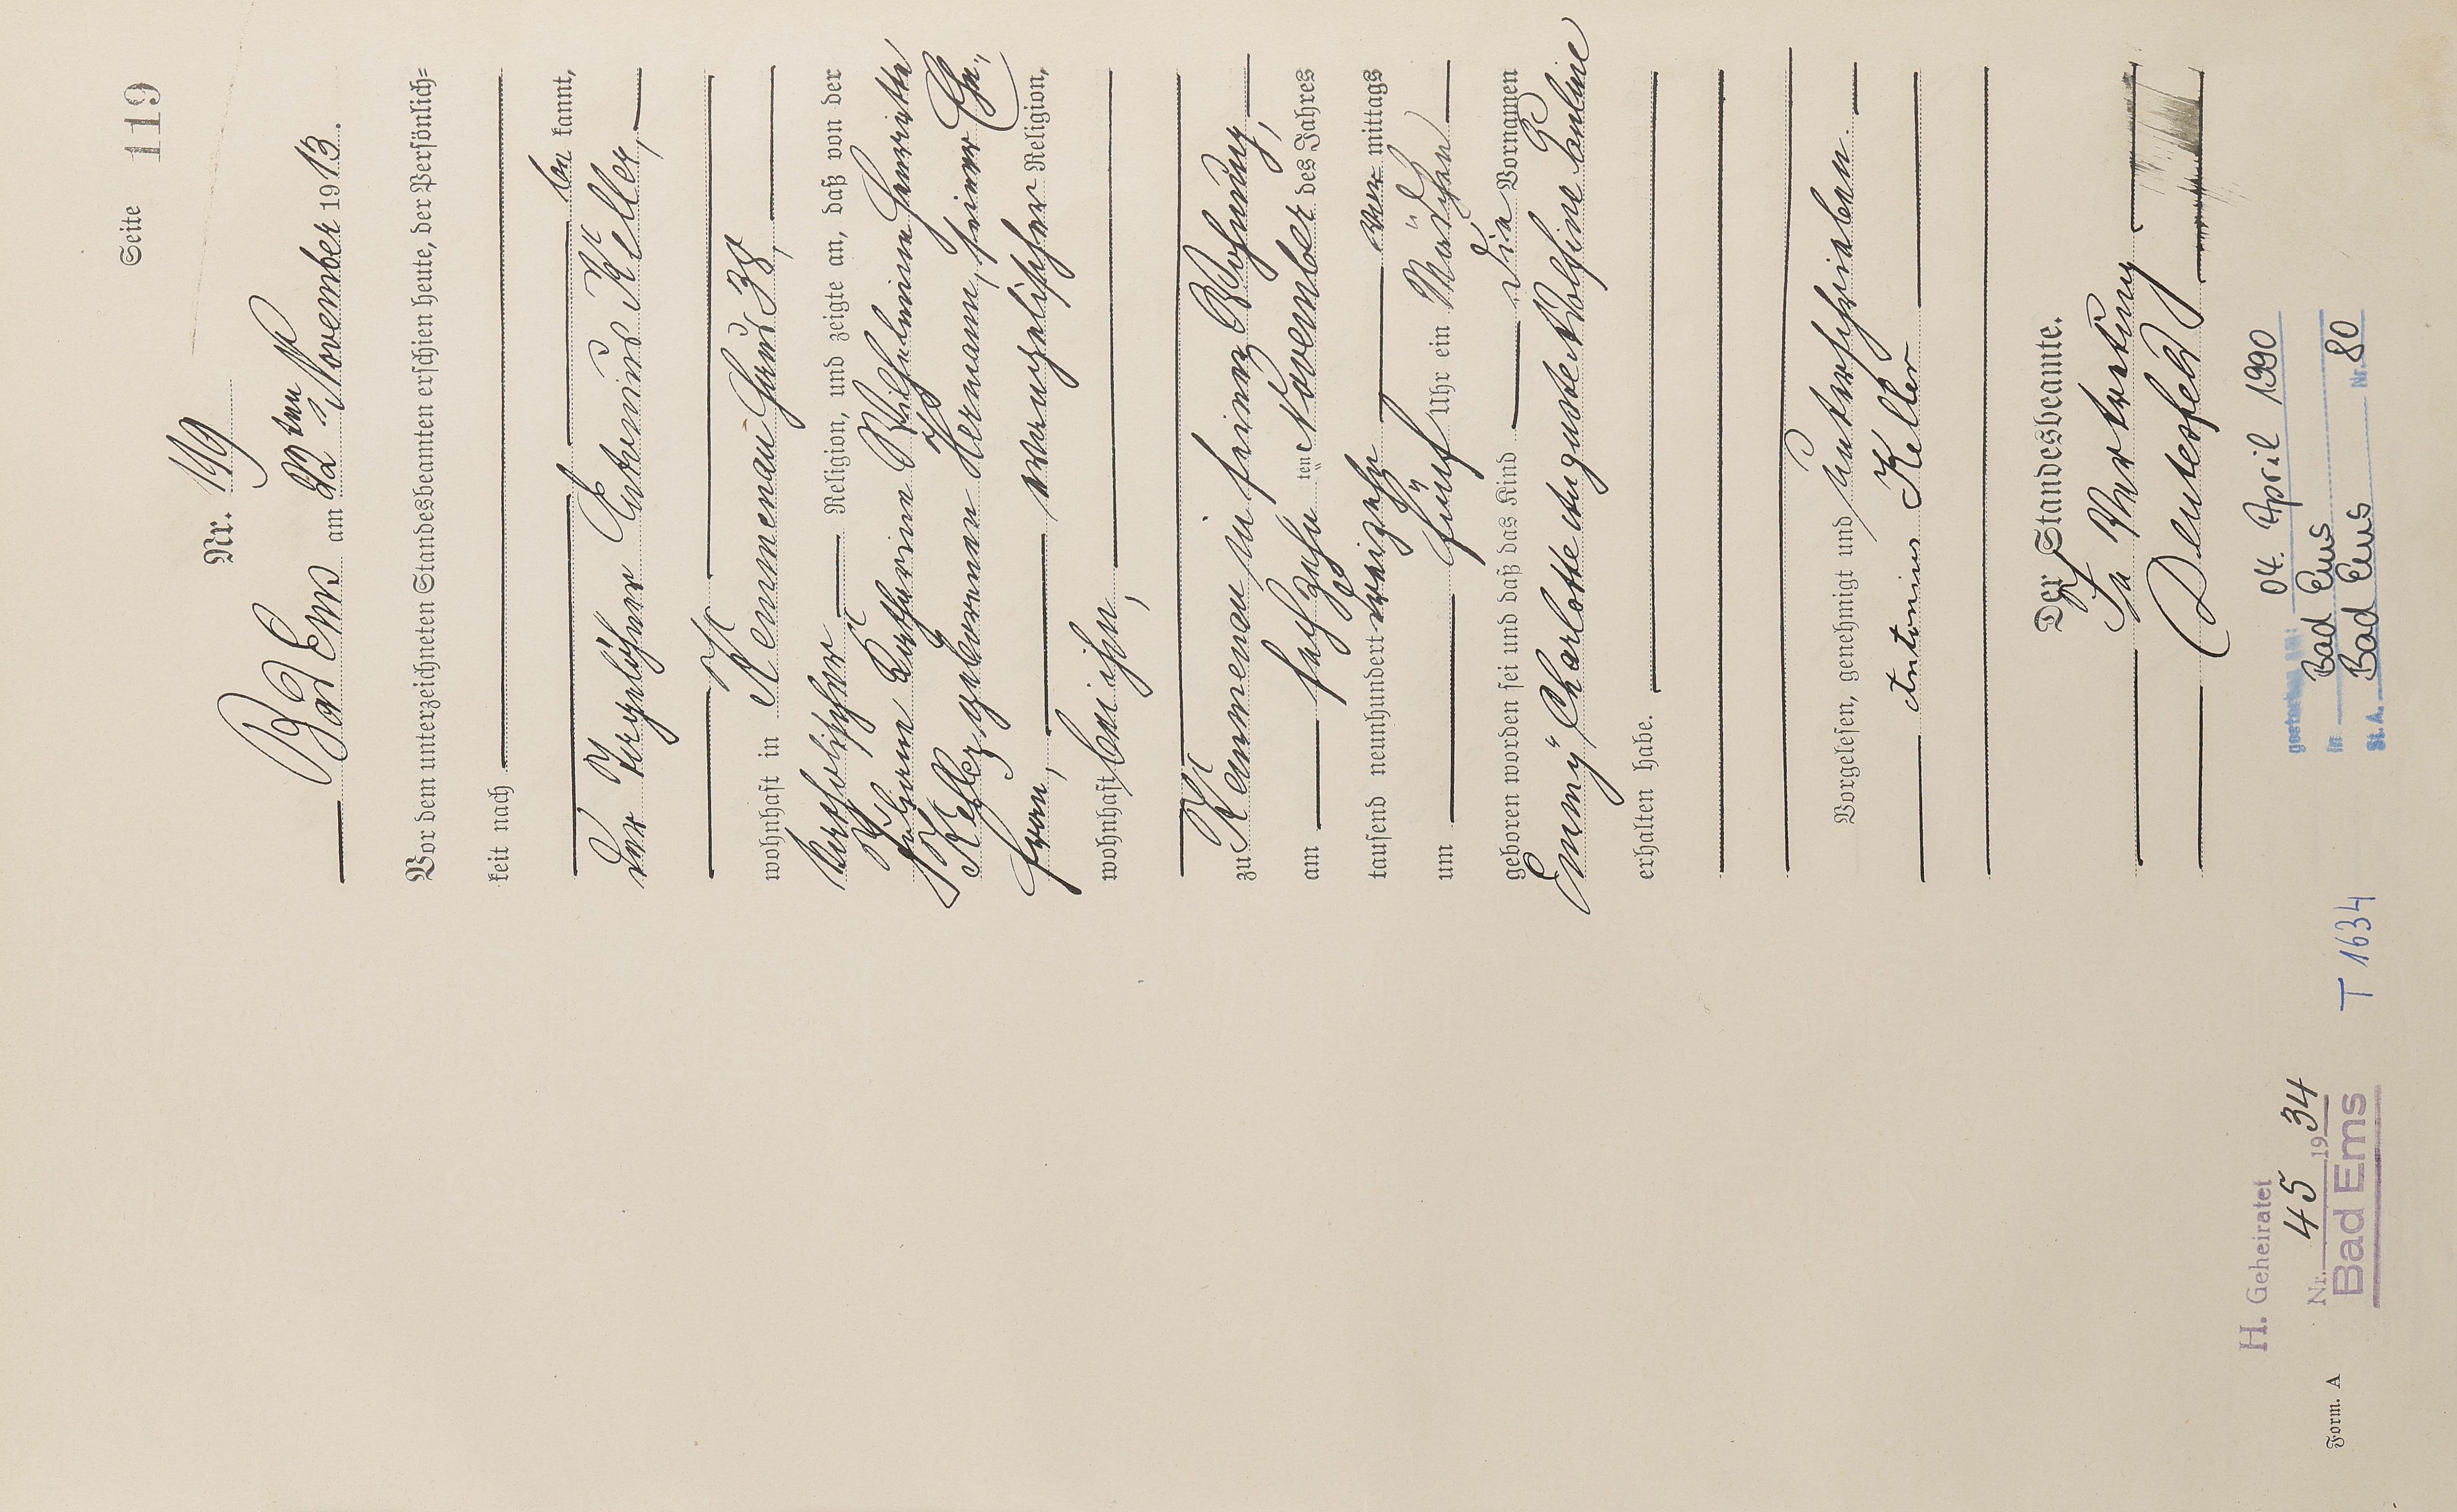 Seite 119
Nr. 119
Bad Ems am 22ten November 1913.
Vor dem unterzeichneten Standesbeamten erschien heute, der Persönlich=
keit nach
be kannt,
der Tagelöhner Antonius Keller,
wohnhaft in Kemmenau Haus 38,
katholischer Religion, und zeigte an, daß von der
Wilhelmine Henriette
Keller geborenen Hermann, seiner Ehe„
frau, evangelischer Religion,
wohnhaft bei ihm,
zu Kemmenau in seiner Wohnung,
am sechzehnten November des Jahres
tausend neunhundert dreizehn vor mittags
um fünf Uhr ein Mädchen
geboren worden sei und daß das Kind die Vornamen
„Emmy“ Charlotte Auguste Pauline
erhalten habe.
Vorgelesen, genehmigt und unterschrieben.
Antonius Keller
Der Standesbeamte.
In Vertretung
gestorben am: 04. April 1990
in Bad Ems
St. A. Bad Ems Nr. 80
T 1634
H. Geheiratet
Nr. 45 1934
Bad Ems
Form. A